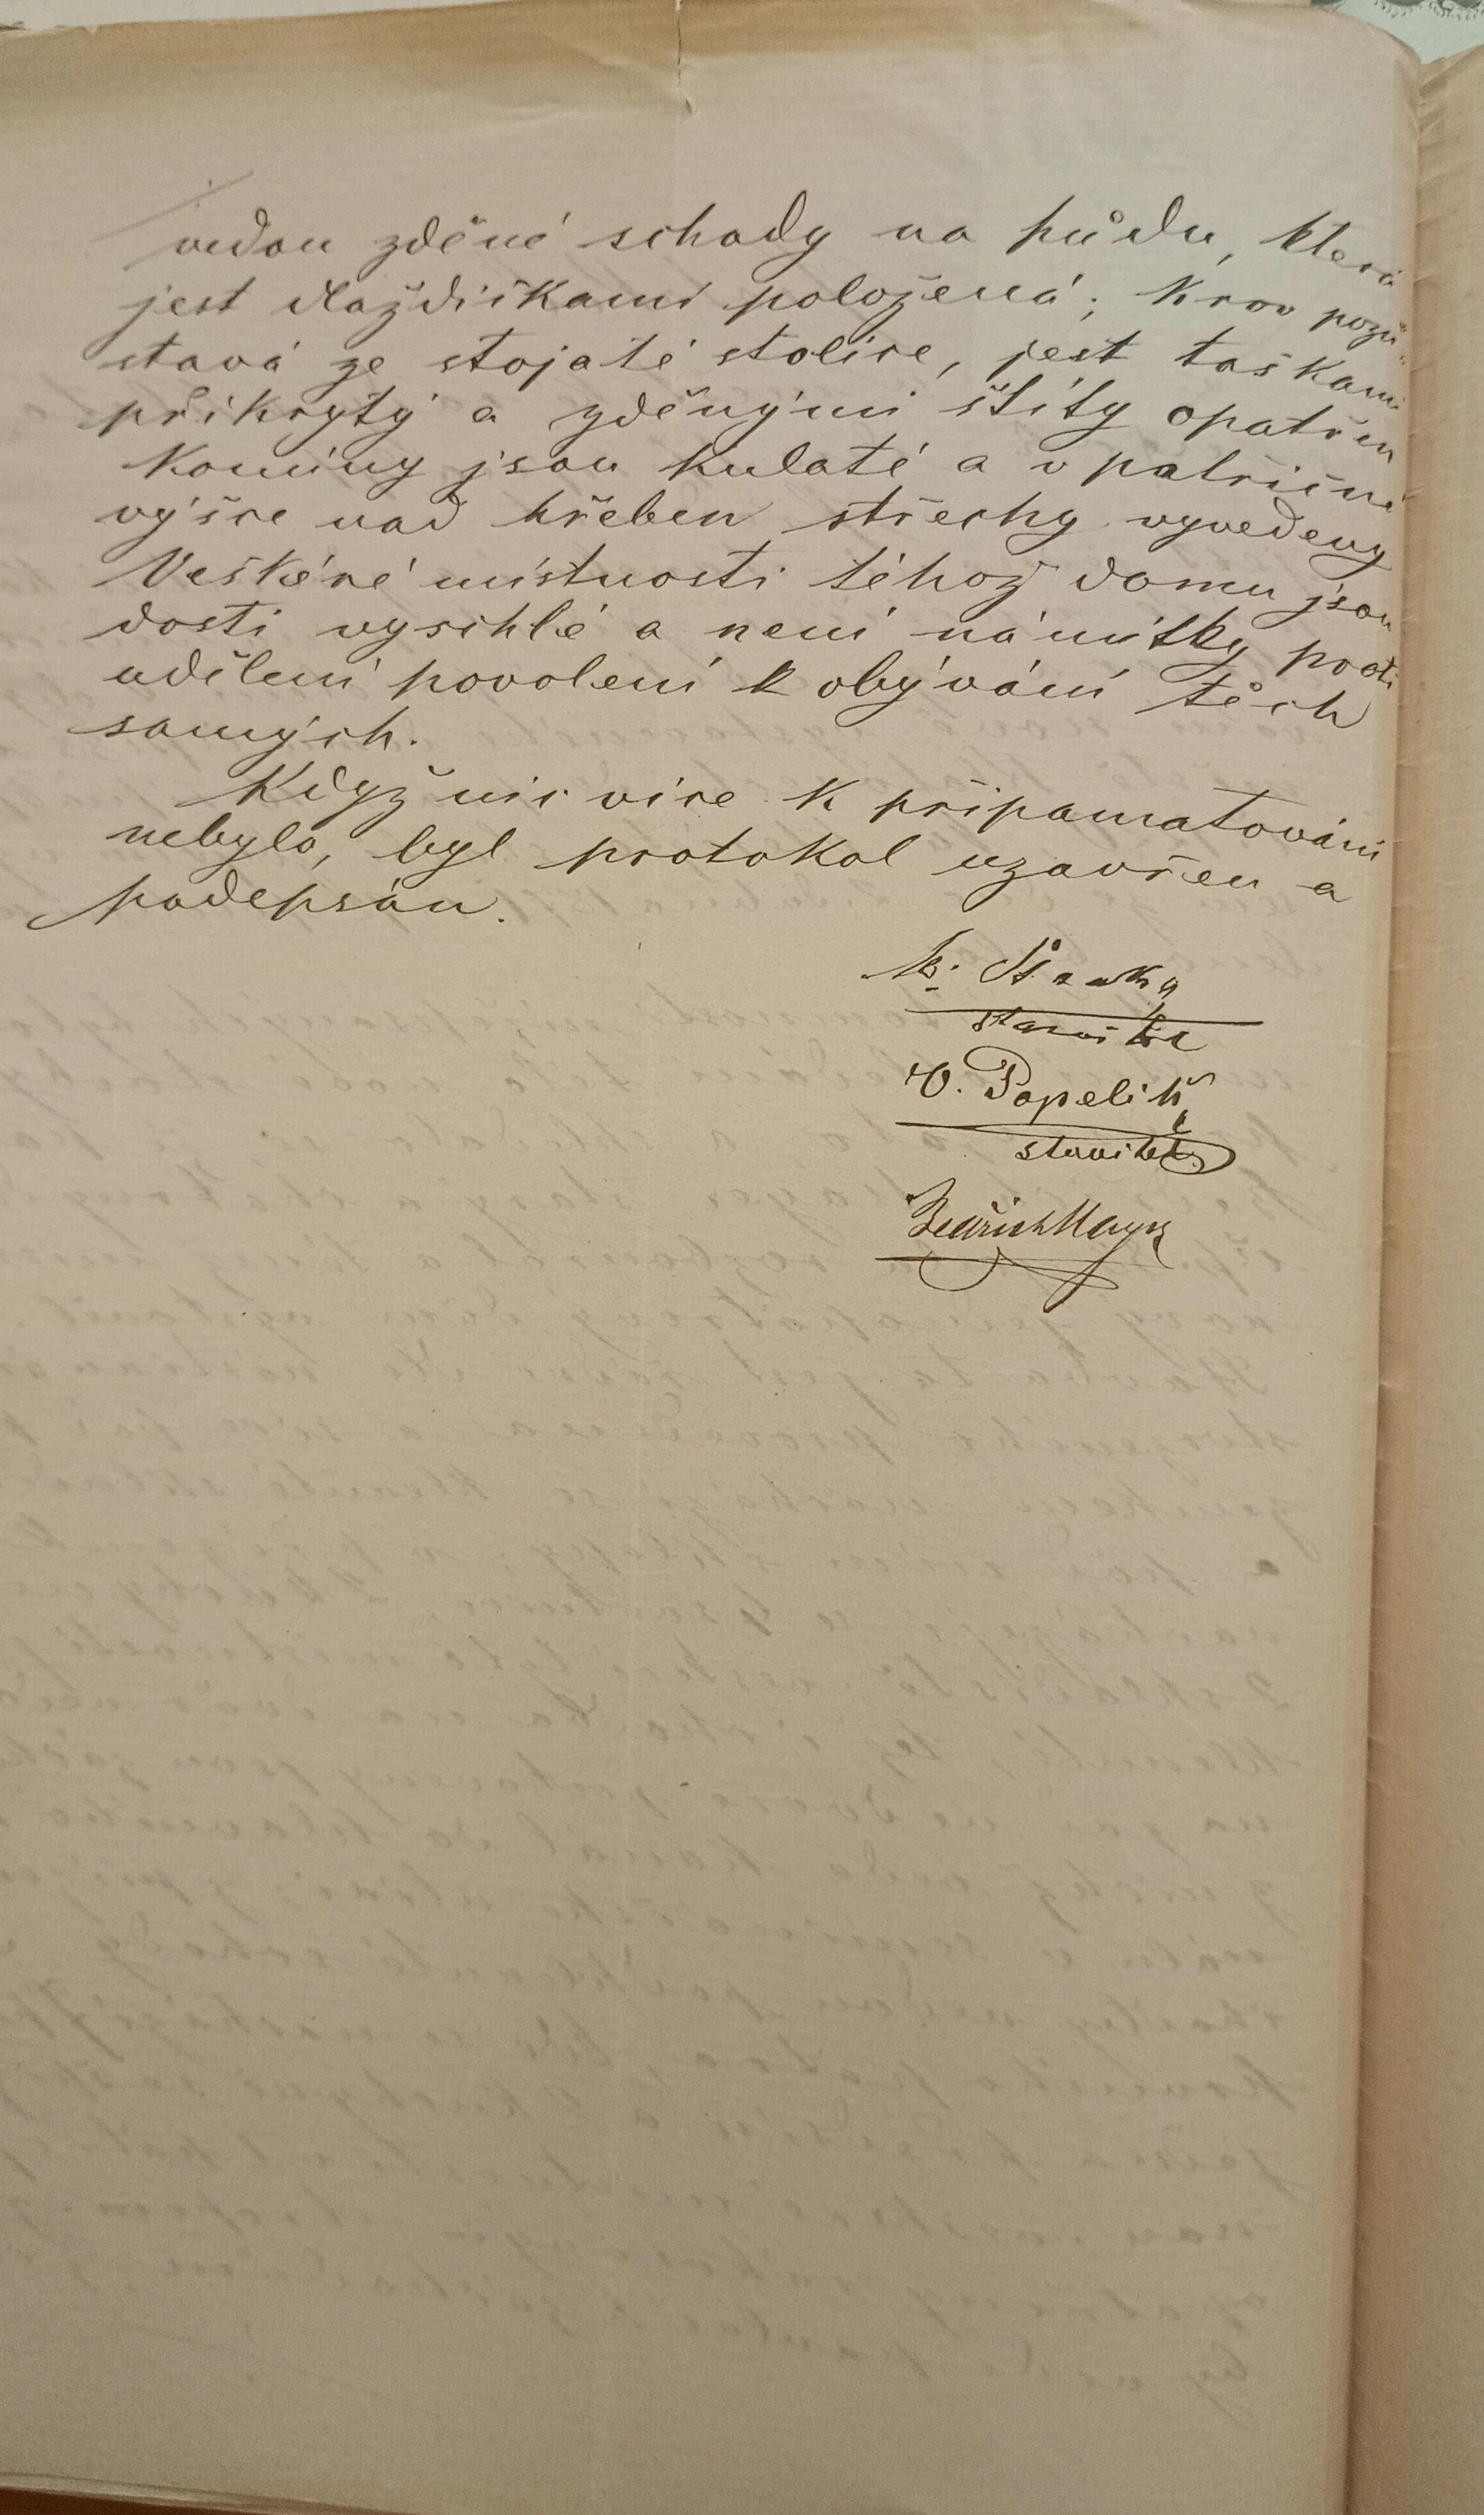 vedou zděné schody na půdu, která
jest dlaždičkami položená; Krov pozů-
stává ze stojaté stolice, jest taškami
přikrytý a zděnými štíty opatřen
Komíny jsou kulaté a v patřičné
výšce nad hřeben střechy vyvedeny
Veškeré místnosti téhož domu jsou
dosti vyschlé a není námitky proti
udělení povolení k obývání těch
samých.
Když nic více k připamatování
nebylo, byl protokol uzavřen a
podepsán.
starosta
V. Popelík
stavitel
Bedřich Mayer